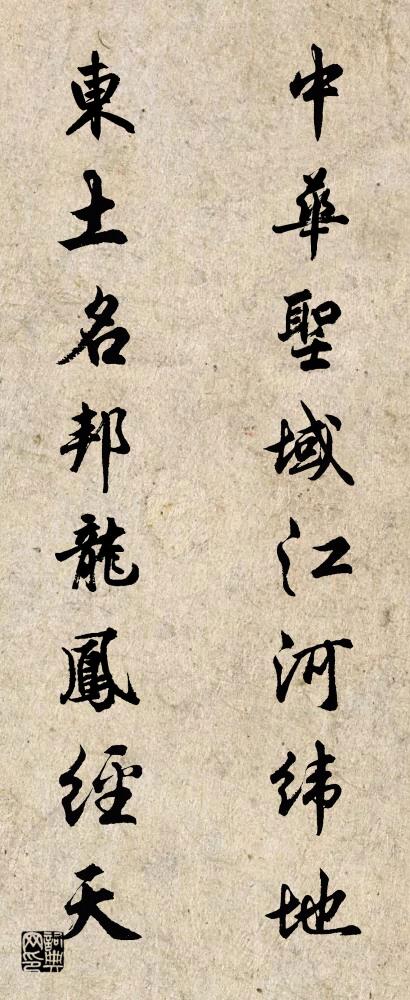 中華聖域江河緯地
東土名邦龍鳳經天
詞典网印